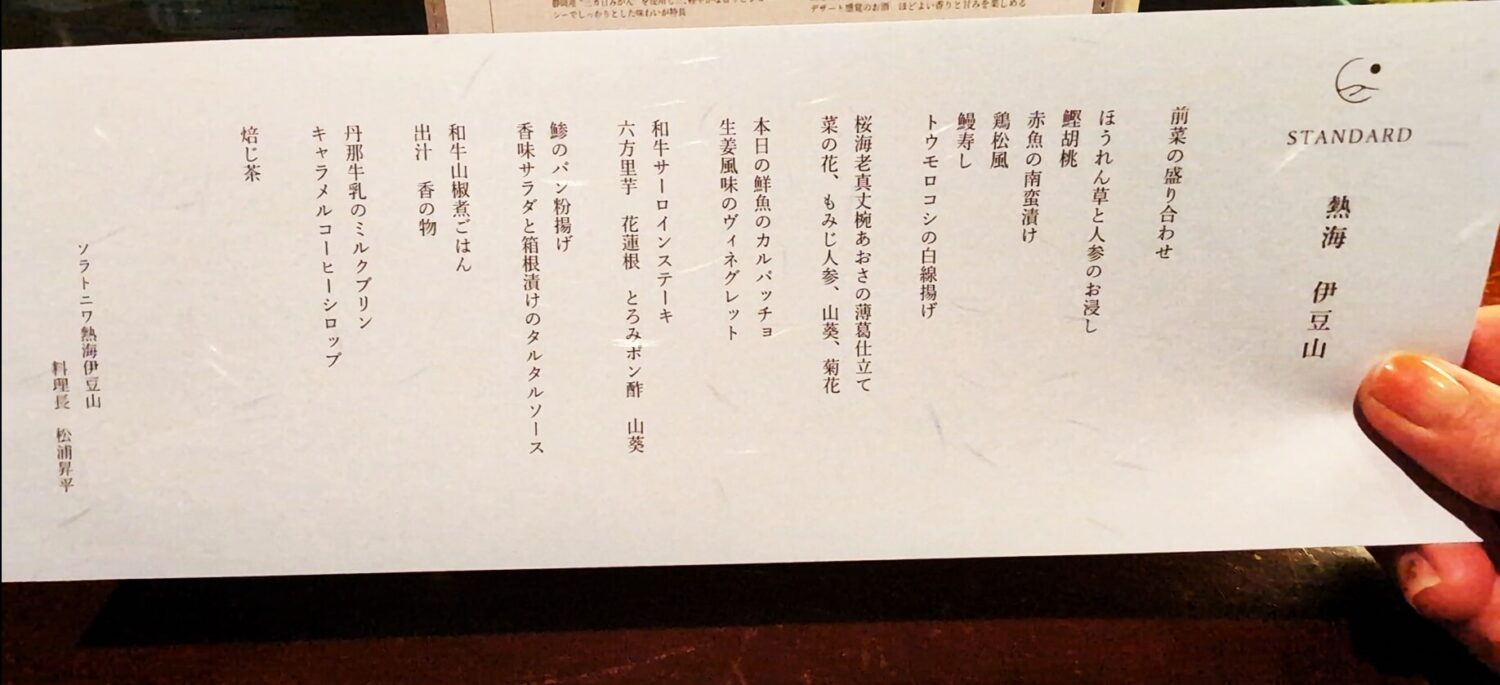 STANDARD
熱海　伊豆山
前菜の盛り合わせ
ほうれん草と人参のお浸し
鰹胡桃
赤魚の南蛮漬け
鶏松風
鰻寿し
トウモロコシの白線揚げ
桜海老真丈椀あおさの薄葛仕立て
菜の花、もみじ人参、山葵、菊花
本日の鮮魚のカルパッチョ
生姜風味のヴィネグレット
和牛サーロインステーキ
六方里芋　花蓮根　とろみポン酢　山葵
鯵のパン粉揚げ
香味サラダと箱根漬けのタルタルソース
和牛山椒煮ごはん
出汁　香の物
丹那牛乳のミルクプリン
キャラメルコーヒーシロップ
焙じ茶
ソラトニワ熱海伊豆山
料理長　松浦昇平
シーでしっかりとした味わいが特長
デザート感覚のお酒　ほどよい香りと甘みを楽しめる